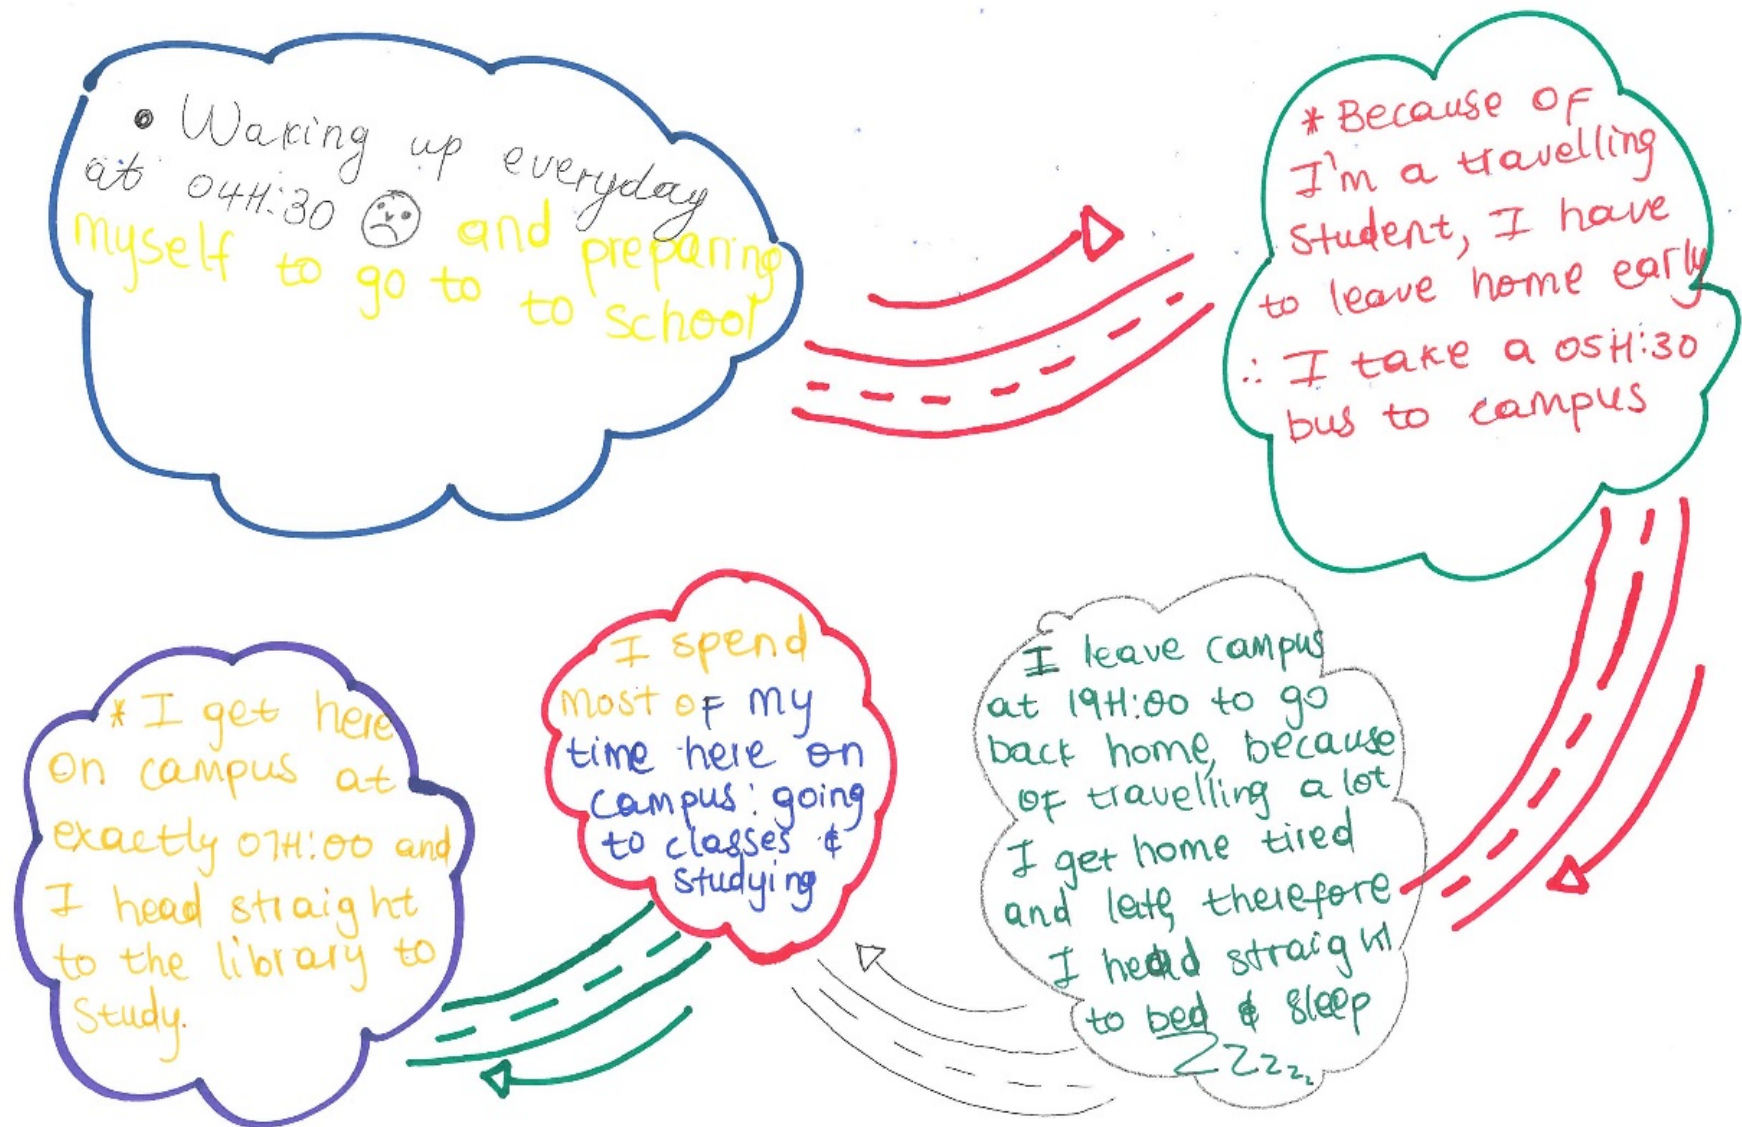 • Waking up everyday
at 04H:30 and preparing
myself to go to to school
* Because OF
I'm a travelling
student, I have
to leave home early
∴ I take a 05H:30
bus to campus
I leave campus
at 19H:00 to go
back home, because
OF travelling a lot
I get home tired
and late, therefore
I head straight
to bed & sleep
ZZzzz
I spend
most OF my
time here on
campus: going
to classes &
studying
* I get here
on campus at
exactly 07H:00 and
I head straight
to the library to
study.